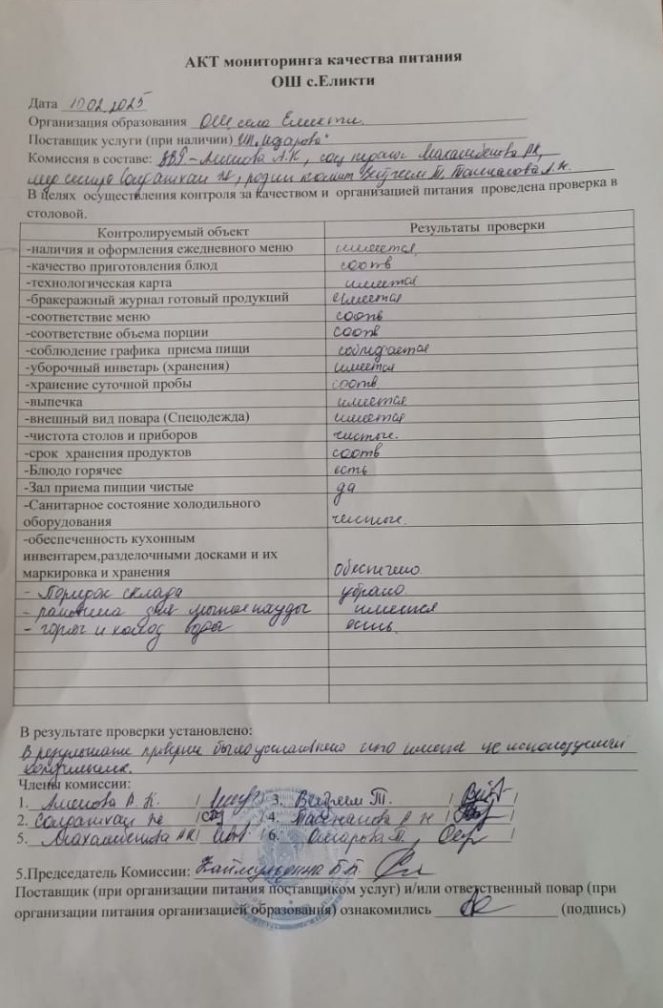 АКТ мониторинга качества питания
ОШ с.Еликти
Дата 10.02.2025
Организация образования ОШ села Еликти.
Поставщик услуги (при наличии) ИП
Комиссия в составе: А.К, соц
мед родит комит Т,
В целях осуществления контроля за качеством и организацией питания проведена проверка в
столовой.
Контролируемый объект Результаты проверки
-наличия и оформления ежедневного меню имеется
-качество приготовления блюд соотв
-технологическая карта имеется
-бракеражный журнал готовый продукций имеется
-соответствие меню соотв
-соответствие объема порции соотв
-соблюдение графика приема пищи соблюдается
-уборочный инветарь (хранения) имеется
-хранение суточной пробы соотв
-выпечка имеется
-внешный вид повара (Спецодежда) имеется
-чистота столов и приборов чистые.
-срок хранения продуктов соотв
-Блюдо горячее есть
-Зал приема пищии чистые да
-Санитарное состояние холодильного
оборудования чистые.
-обеспеченность кухонным
инвентарем,разделочными досками и их
маркировка и хранения обеспечено.
- Порядок склада убрано
- раковина для имеется
- горяч и холод вода есть.
В результате проверки установлено:
В результате проверки было установлено что имеется не используемый
холодильник.
Члены комиссии:
1. А. К. / / 3. Т. / /
2. / / 4. / /
5. / / 6. /
5.Председатель Комиссии:
Поставщик (при организации питания поставщиком услуг) и/или ответственный повар (при
организации питания организацией образования) ознакомились (подпись)